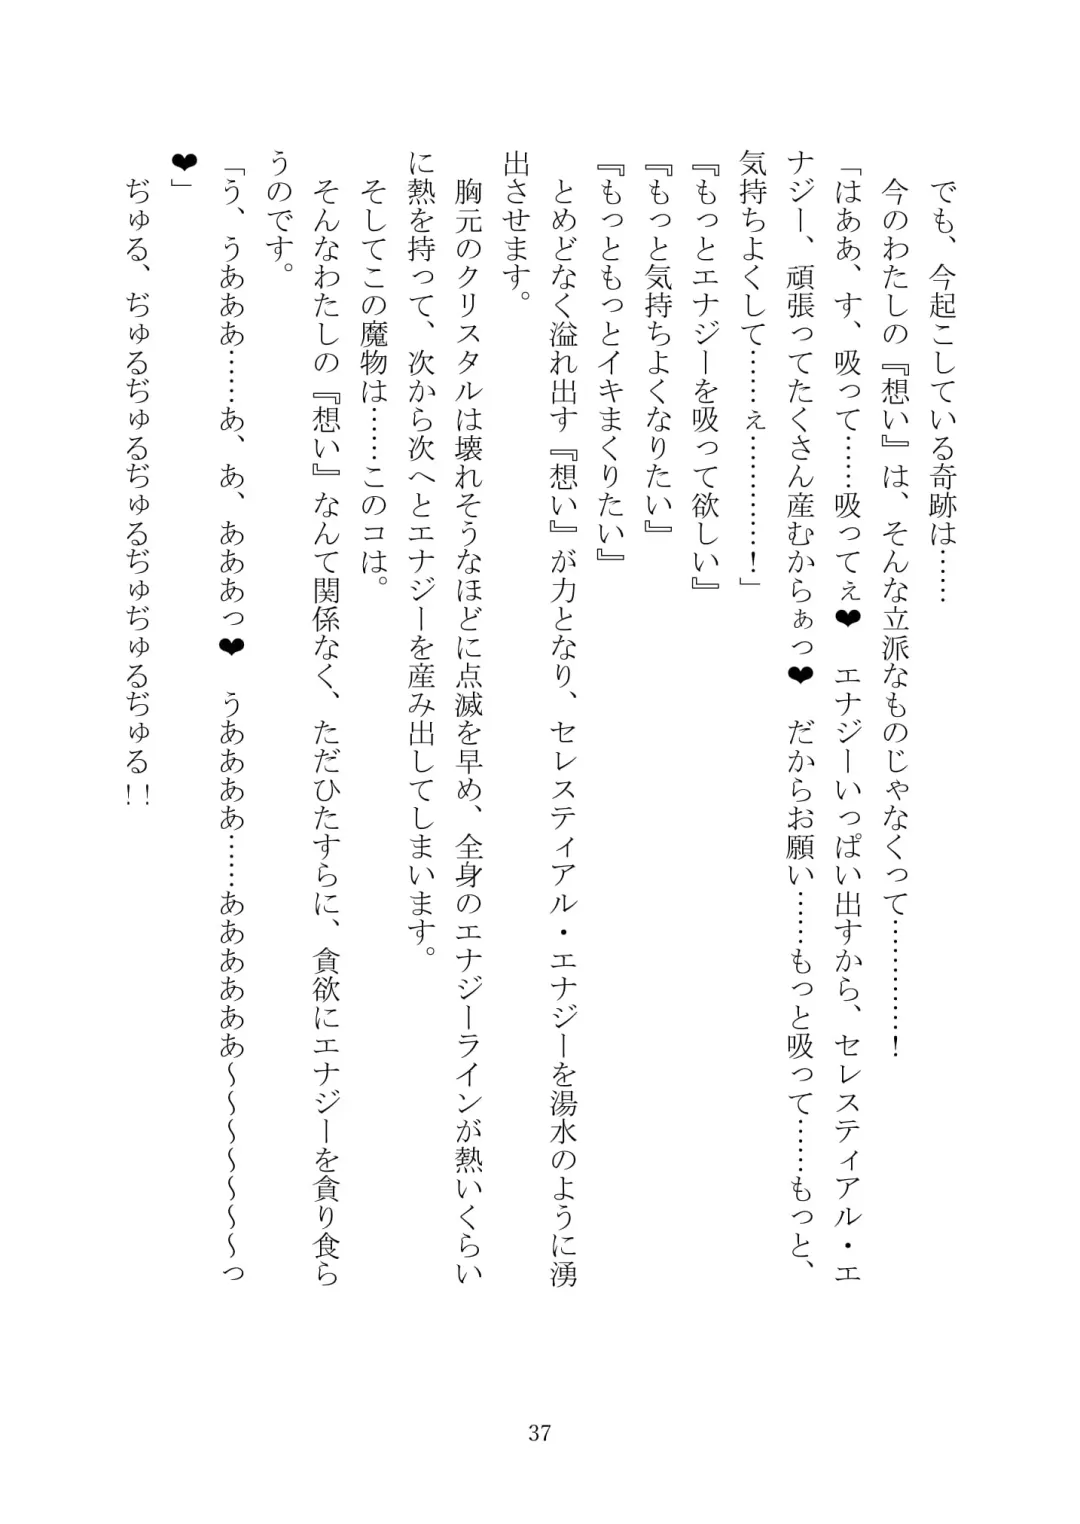 でも、今起こしている奇跡は……
今のわたしの『想い』は、そんな立派なものじゃなくって…………！
「はああ、す、吸って……吸ってぇ❤　エナジーいっぱい出すから、セレスティアル・エ
ナジー、頑張ってたくさん産むからぁっ❤　だからお願い……もっと吸って……もっと、
気持ちよくして……ぇ…………！」
『もっとエナジーを吸って欲しい』
『もっと気持ちよくなりたい』
『もっともっとイキまくりたい』
とめどなく溢れ出す『想い』が力となり、セレスティアル・エナジーを湯水のように湧
出させます。
胸元のクリスタルは壊れそうなほどに点滅を早め、全身のエナジーラインが熱いくらい
に熱を持って、次から次へとエナジーを産み出してしまいます。
そしてこの魔物は……このコは。
そんなわたしの『想い』なんて関係なく、ただひたすらに、貪欲にエナジーを貪り食ら
うのです。
「う、うあああ……あ、あ、あああっ❤　うああああ……ああああああ～～～～～～～っ
❤」
ぢゅる、ぢゅるぢゅるぢゅるぢゅぢゅるぢゅる！！
37